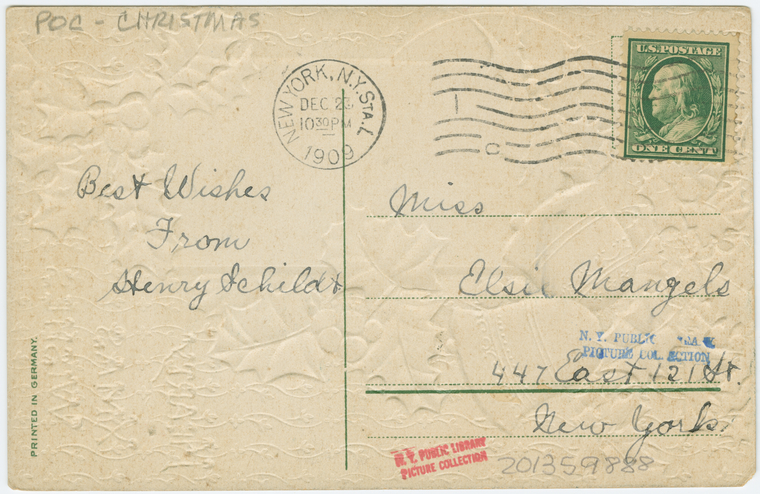 POC - CHRISTMAS
U.S. POSTAGE
ONE CENT
NEW YORK, N.Y. STA. L
DEC 23
10 30 PM
1909
1
C
Best Wishes
From
Henry Schildt
Miss
Elsie Mangels
N. Y. PUBLIC
PICTURE COLLECTION
447 East 121 St.
New York.
N. Y. PUBLIC LIBRARY
PICTURE COLLECTION
201359888
PRINTED IN GERMANY.